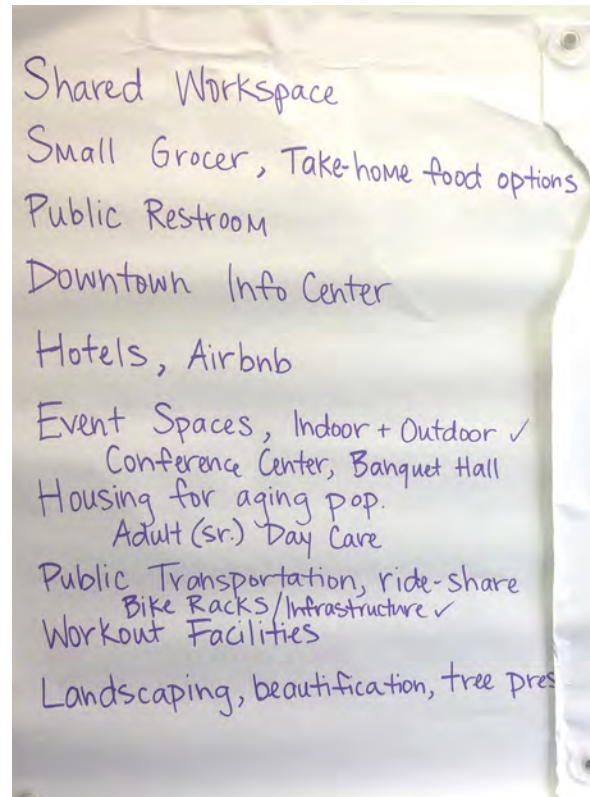 Shared Workspace
Small Grocer, Take-home food options
Public Restroom
Downtown Info Center
Hotels, Airbnb
Event Spaces, Indoor + Outdoor ✓
Conference Center, Banquet Hall
Housing for aging pop.
Adult (sr.) Day Care
Public Transportation, ride-share
Bike Racks/Infrastructure ✓
Workout Facilities
Landscaping, beautification, tree pres